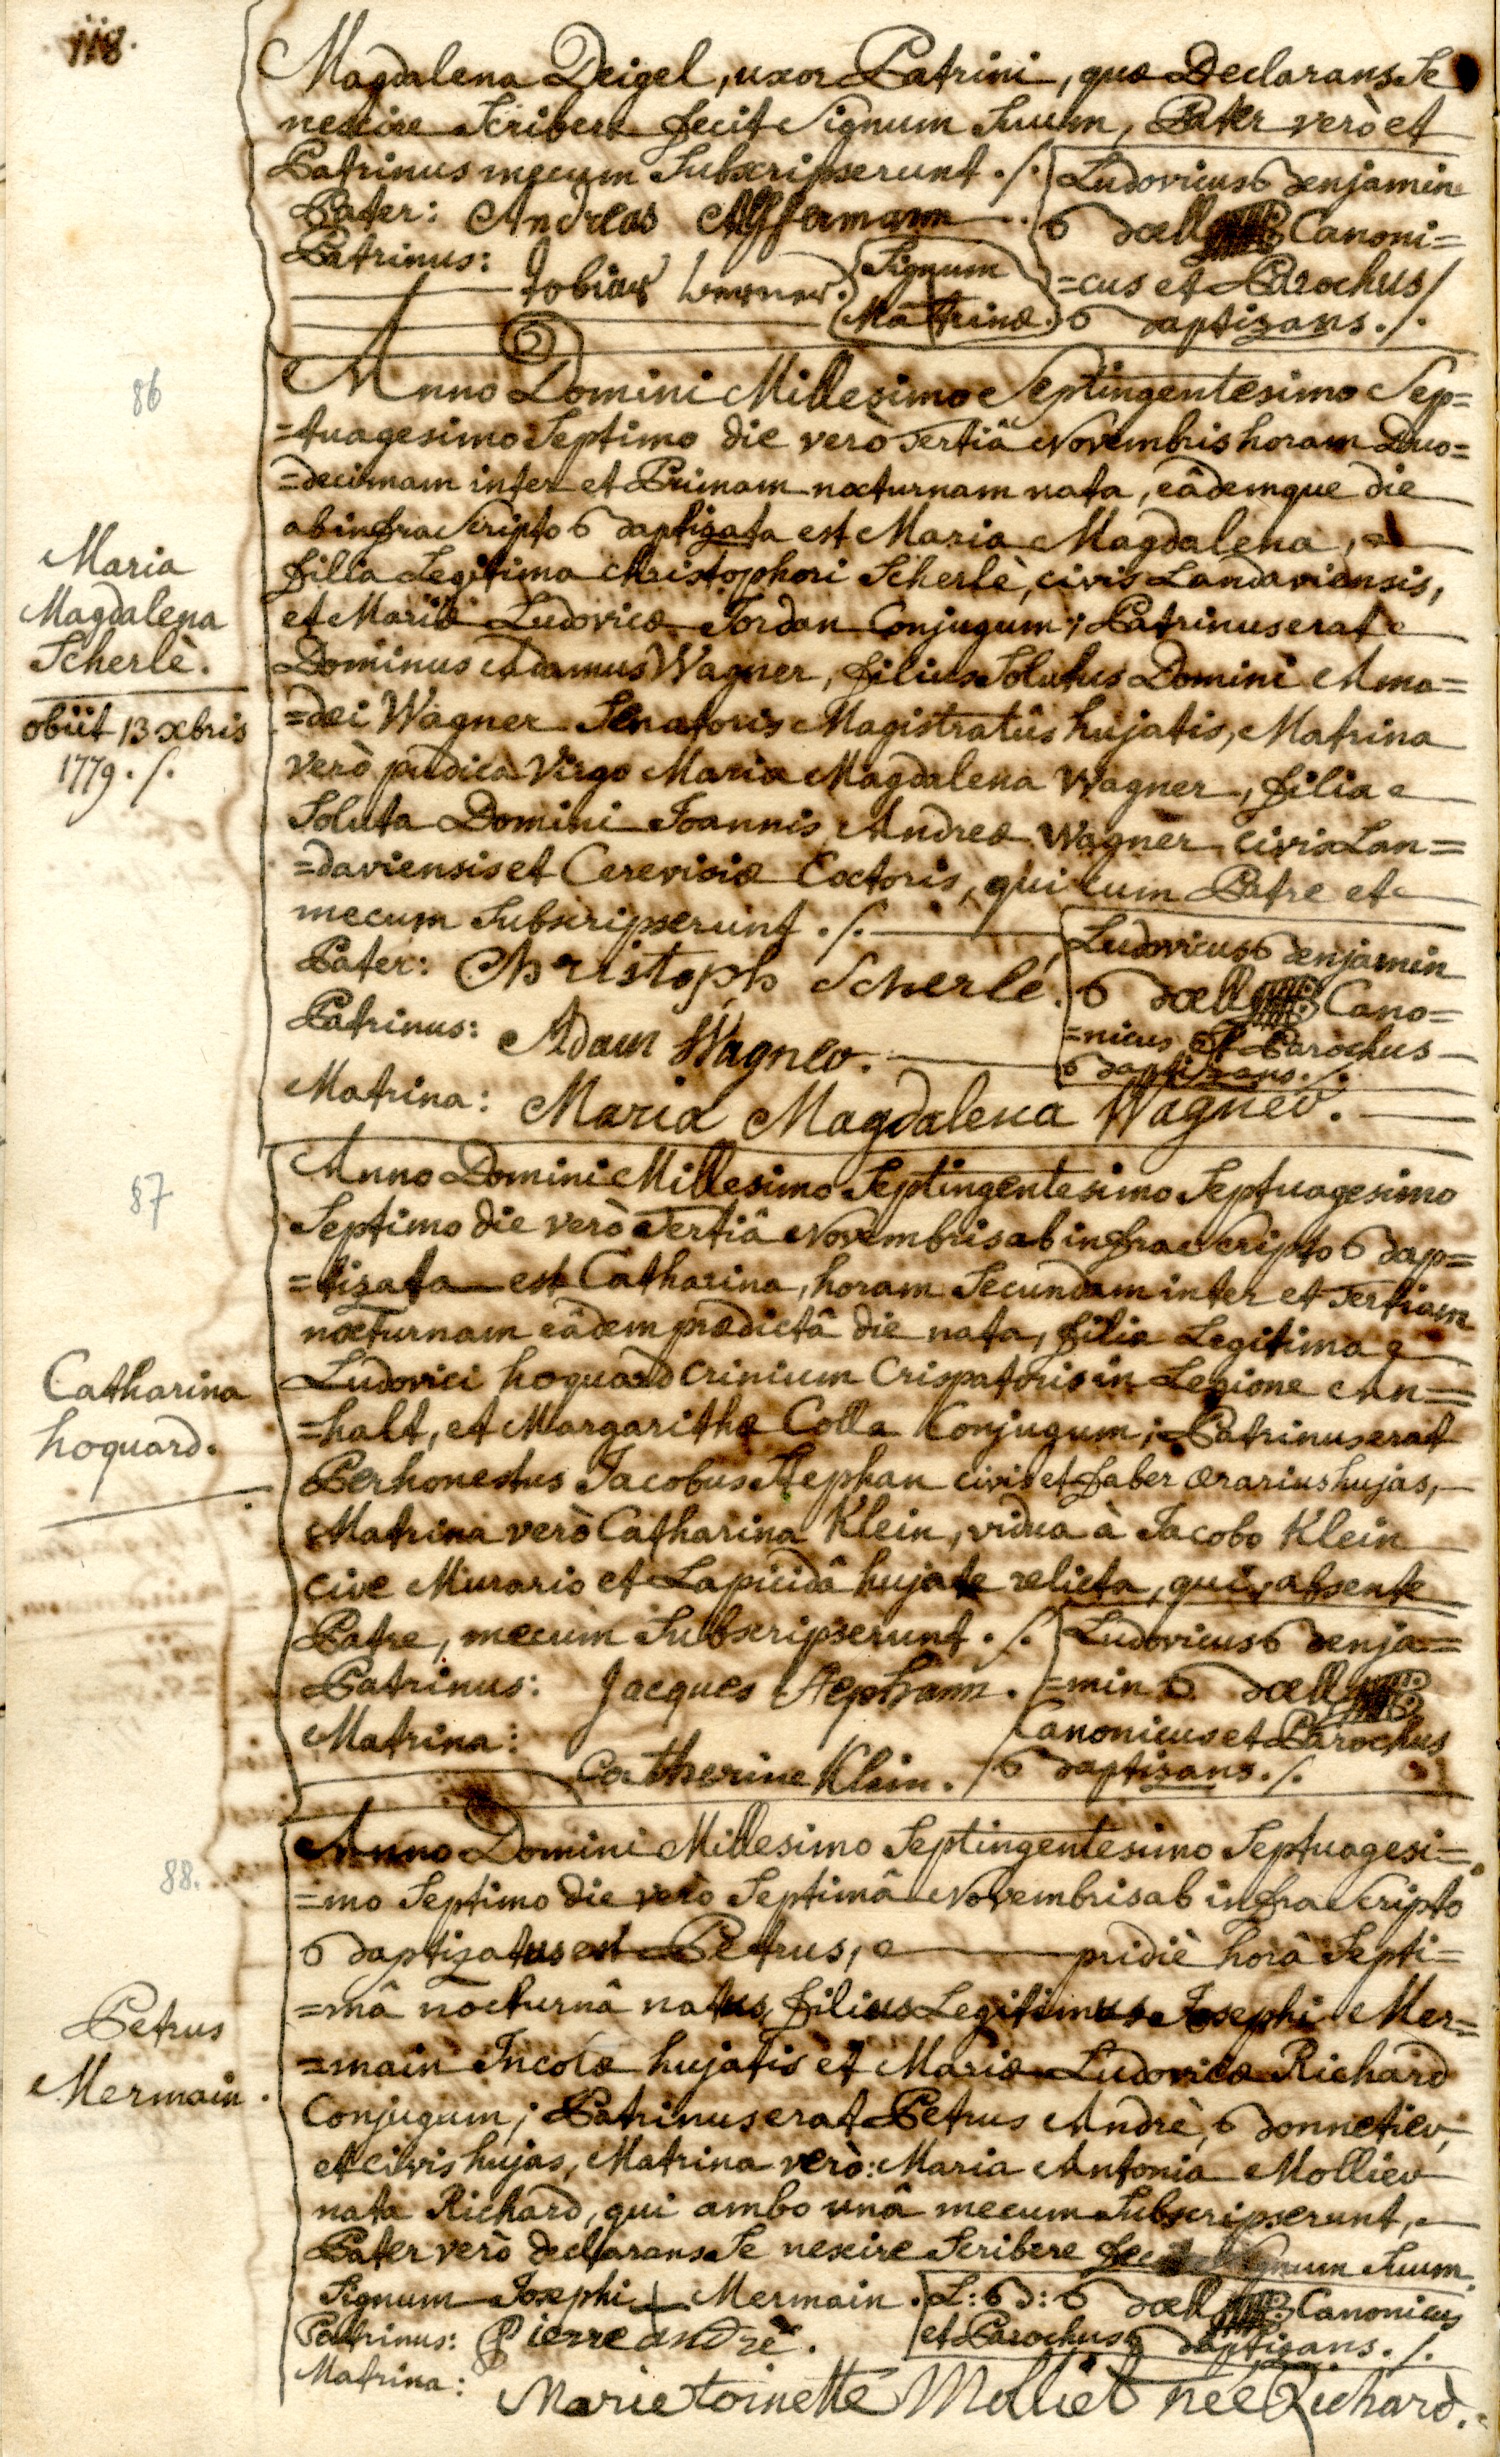 118.
Magdalena Deigel, uxor Patrini, quæ Declarans Se
nescire Scribere fecit Signum Suum, Pater verò et
Patrinus mecum Subscripserunt ./.
Ludovicus Benjamin
Pater: Andreas Affermann
Boell Canoni=
Patrinus: Tobias Werner.
Signum
Matrinæ.
=cus et Parochus
Baptizans ./.
86
Anno Domini Millesimo Septingentesimo Sep=
=tuagesimo Septimo die verò Tertiâ Novembris horam Duo=
=decimam inter et Primam nocturnam nata, eâdemque die
ab infra Scripto Baptizata est Maria Magdalena,
filia Legitima Christophori Scherlè, civis Landaviensis,
et Mariæ Ludovicæ Jordan Conjugum; Patrinus erat
Dominus Adamus Wagner, filius Solutus Domini Ama=
=dei Wagner Senatoris Magistratûs hujatis, Matrina
verò pudica Virgo Maria Magdalena Wagner, filia
Soluta Domini Joannis Andreæ Wagner civis Lan=
=daviensis et Cerevisiæ Coctoris, qui cum Patre et
mecum Subscripserunt ./.
Maria
Magdalena
Scherlè.
obiit 13 xbris
1779 ./.
Ludovicus Benjamin
Pater: Christoph Scherlé.
Boell Cano=
=nicus et Parochus
Baptizans ./.
Patrinus: Adam Wagner.
Matrina: Maria Magdalena Wagner.
87
Anno Domini Millesimo Septingentesimo Septuagesimo
Septimo die verò Tertiâ Novembris ab infra Scripto Bap=
=tizata est Catharina, horam Secundam inter et Tertiam
nocturnam eâdem prædictâ die nata, filia Legitima
Ludovici hoquard Crinium Crispatoris in Legione An=
=halt, et Margarithæ Colla Conjugum; Patrinus erat
Perhonestus Jacobus Stephan civis et faber ærarius hujas,
Matrina verò Catharina Klein, vidua à Jacobo Klein
cive Murario et Lapicidâ hujate relicta, qui, absente
Patre, mecum Subscripserunt ./.
Catharina
hoquard.
Ludovicus Benja=
Patrinus: Jacques Stephann.
=min Boell
Canonicus et Parochus
Matrina: Catherine Klein.
Baptizans ./.
88.
Anno Domini Millesimo Septingentesimo Septuagesi=
=mo Septimo die verò Septimâ Novembris ab infra Scripto
Baptizatus est Petrus, pridiè horâ Septi=
=mâ nocturnâ natus, filius Legitimus Josephi Mer=
=main Incolæ hujatis et Mariæ Ludovicæ Richard
Conjugum; Patrinus erat Petrus Andrè, Bonnetier,
et civis hujas, Matrina verò: Maria Antonia Mollier
nata Richard, qui ambo unâ mecum Subscripserunt,
Pater verò declarans Se nescire Scribere fecit Signum Suum.
Petrus
Mermain.
Signum Josephi + Mermain.
L: B: Boell Canonicus
et Parochus Baptizans ./.
Patrinus: Pierre andrè.
Matrina: Marie toinette Molliet nee Richard.